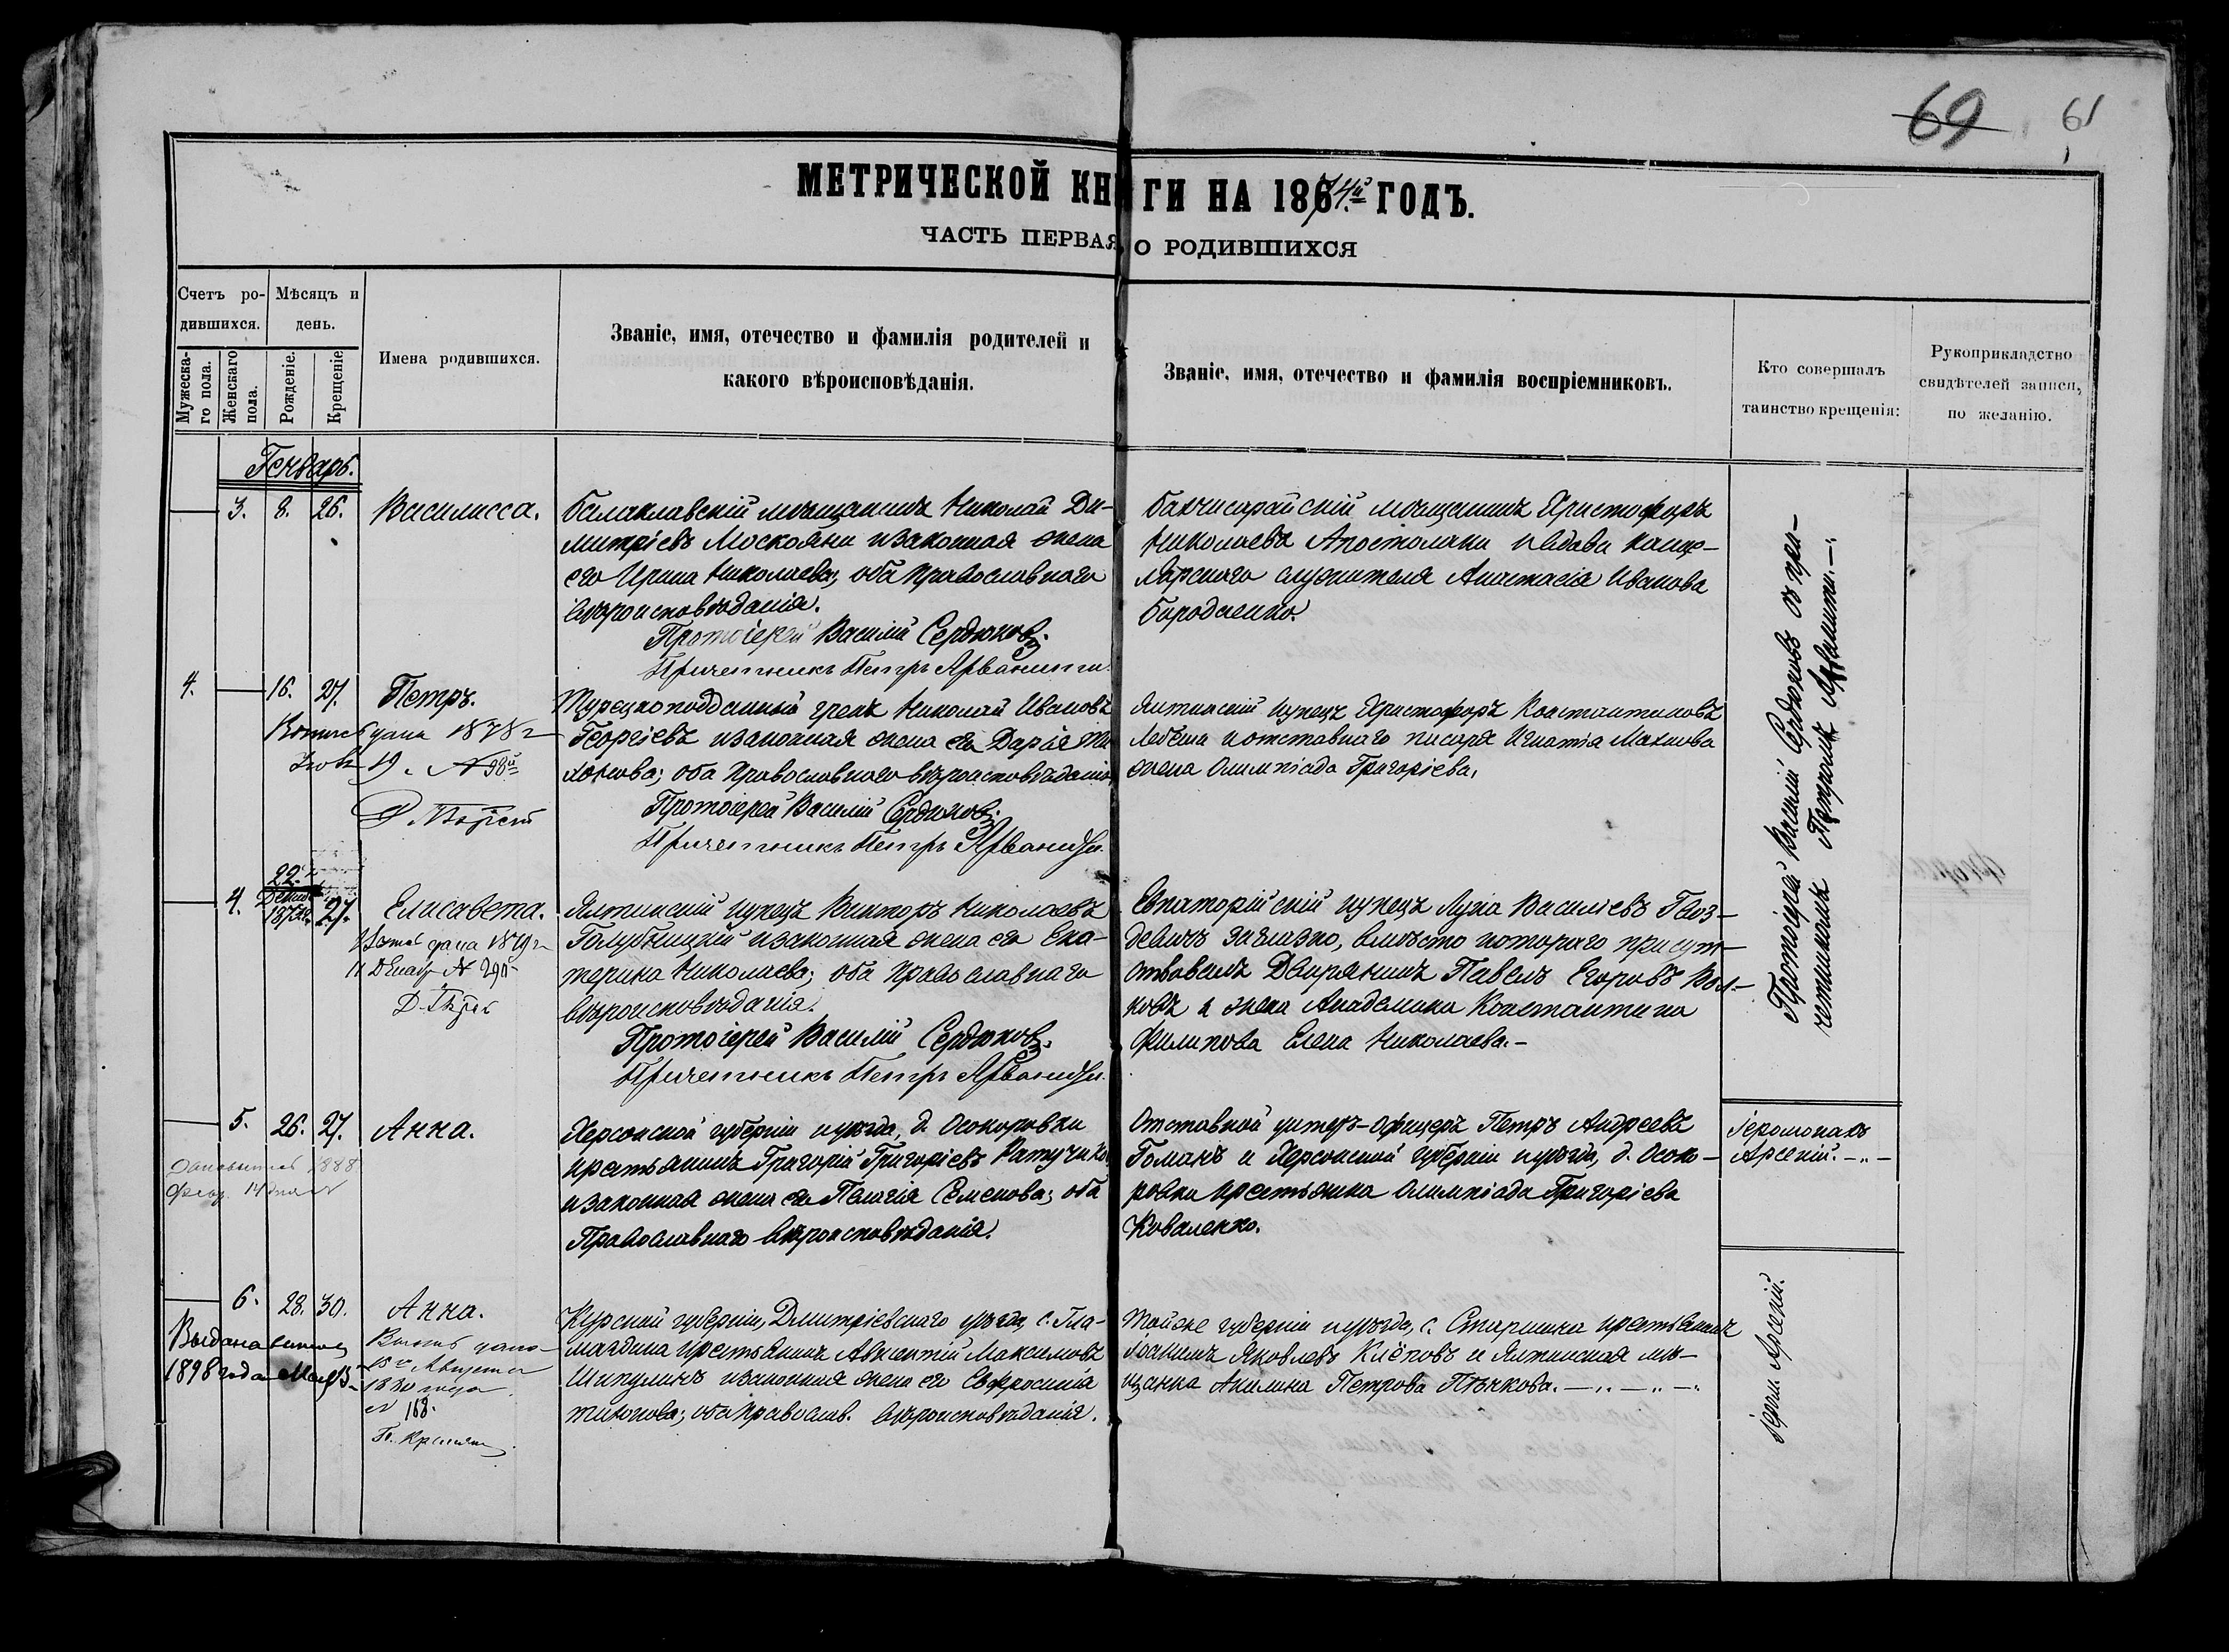 69 61
МЕТРИЧЕСКОЙ КНИГИ НА 1874й ГОДЪ.
ЧАСТЬ ПЕРВАЯ О РОДИВШИХСЯ
Счетъ ро-
дившихся.
Мужеска-
го пола.
Женскаго
пола.
Мѣсяцъ и
день.
Рожденіе.
Крещеніе.
Имена родившихся.
Званіе, имя, отечество и фамилія родителей и
какого вѣроисповѣданія.
Званіе, имя, отечество и фамилія воспріемниковъ.
Кто совершалъ
таинство крещенія:
Рукоприкладство
свидѣтелей записи,
по желанію.
Генварь.
3. 8. 26. Василисса.
Балаклавскій мѣщанинъ Николай Ди-
митріевъ Москояни и законная жена
его Ирина Николаева; оба православнаго
вѣроисповѣданія.
Протоіерей Василій Сердюковъ.
Причетникъ Петръ Арванити.
Бахчисарайскій мѣщанинъ Христофоръ
Николаевъ Апостолаки и вдова канце-
лярскаго служителя Анастасія Иванова
Бородаенко.
Протоіерей Василій Сердюковъ съ при-
четникомъ Петромъ Арванити.
4. 16. 27. Петръ.
дана 1878 г
19. N 98й
Турецкоподданный грекъ Николай Ивановъ
Георгіевъ и законная жена его Дарія Ти-
хонова; оба православнаго вѣроисповѣданія.
Протоіерей Василій Сердюковъ.
Причетникъ Петръ Арваниди.
Ялтинскій купецъ Христофоръ Константиновъ
и отставнаго писаря Игнатія Махнова
жена Олимпіада Григоріева.
4. 22. Декаб. 27. Елисавета.
дана 1879 г
11 Декабр N 290
Ялтинскій купецъ Викторъ Николаевъ
Голубницкій и законная жена его Ека-
терина Николаева; оба православнаго
вѣроисповѣданія.
Протоіерей Василій Сердюковъ.
Причетникъ Петръ Арваниди.
Евпаторійскій купецъ Лука Василіевъ Гвоз-
девичъ заглазно, вмѣсто котораго присут-
ствовалъ Дворянинъ Павелъ Егоровъ Вол-
ковъ и жена Академика Константина
Филипова Елена Николаева.-
5. 26. 27. Анна.
1888
Февр. 14 дня
Херсонской губерніи и уѣзда, д. Осокоровки
крестьянинъ Григорій Григоріевъ
и законная жена его Пелагія Семенова; оба
Православнаго вѣроисповѣданія.
Отставной унтеръ-офицеръ Петръ Андреевъ
Гоманъ и Херсонской губерніи и уѣзда, д. Осоко-
ровки крестьянка Олимпіада Григоріева
Коваленко.
Іеромонахъ
Арсеній.
6. 28. 30. Анна.
Выдана выпись
1898 года
Выпись дана
15го Августа
N 168.
Курской губерніи, Дмитріевскаго уѣзда, с.
крестьянинъ Авксентій Максимовъ
Шипулинъ и законная жена его Евфросинія
Титовова; оба православ. вѣроисповѣданія.
губерніи и уѣзда, с. крестьянинъ
Яковлевъ Клёповъ и Ялтинская мѣ-
щанка Акилина Петрова Пѣнкова.
Іером. Арсеній.